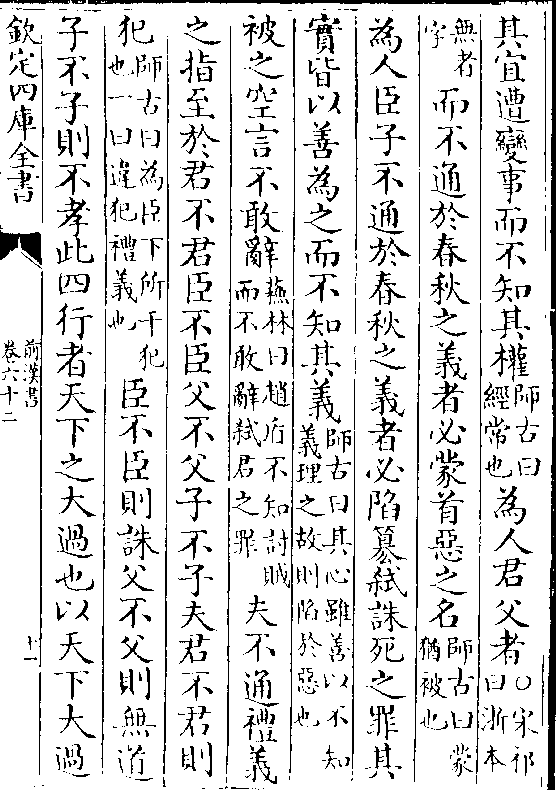 其宜遭變事而不知其權師古曰經常也為人君父者○宋祁曰浙本
無者字而不通於春秋之義者必蒙首惡之名師古曰蒙猶被也
為人臣子不通於春秋之義者必陷篡弑誅死之罪其
實皆以善為之而不知其義師古曰其心雖善以不知義理之故則陷於惡也
被之空言不敢辭蘓林曰趙盾不知討賊而不敢辭弑君之罪夫不通禮義
之指至於君不君臣不臣父不父子不子夫君不君則
犯師古曰為臣下所干犯也一曰違犯禮義也臣不臣則誅父不父則無道
子不子則不孝此四行者天下之大過也以天下大過
欽定四庫全書
前漢書
卷六十二
十一